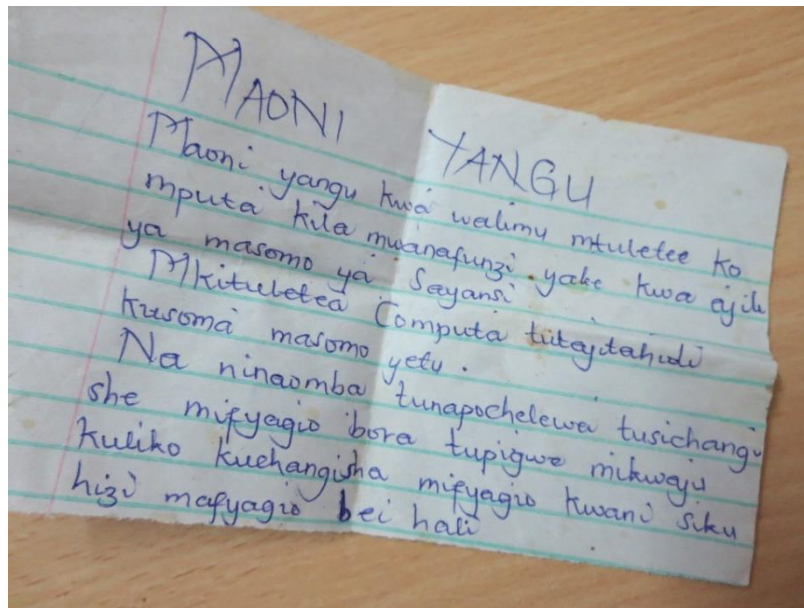 MAONI YANGU
Maoni yangu kwa walimu mtuletee ko
mputa kila mwanafunzi yake kwa ajili
ya masomo ya Sayansi
Mkituletea Computa tutajitahidi
kusoma masomo yetu.
Na ninaomba tunapochelewa tusichangi
she mifyagio bora tupigwe mikwaju
kuliko kuchangisha mifyagio kwani siku
hizi mafyagio bei hali